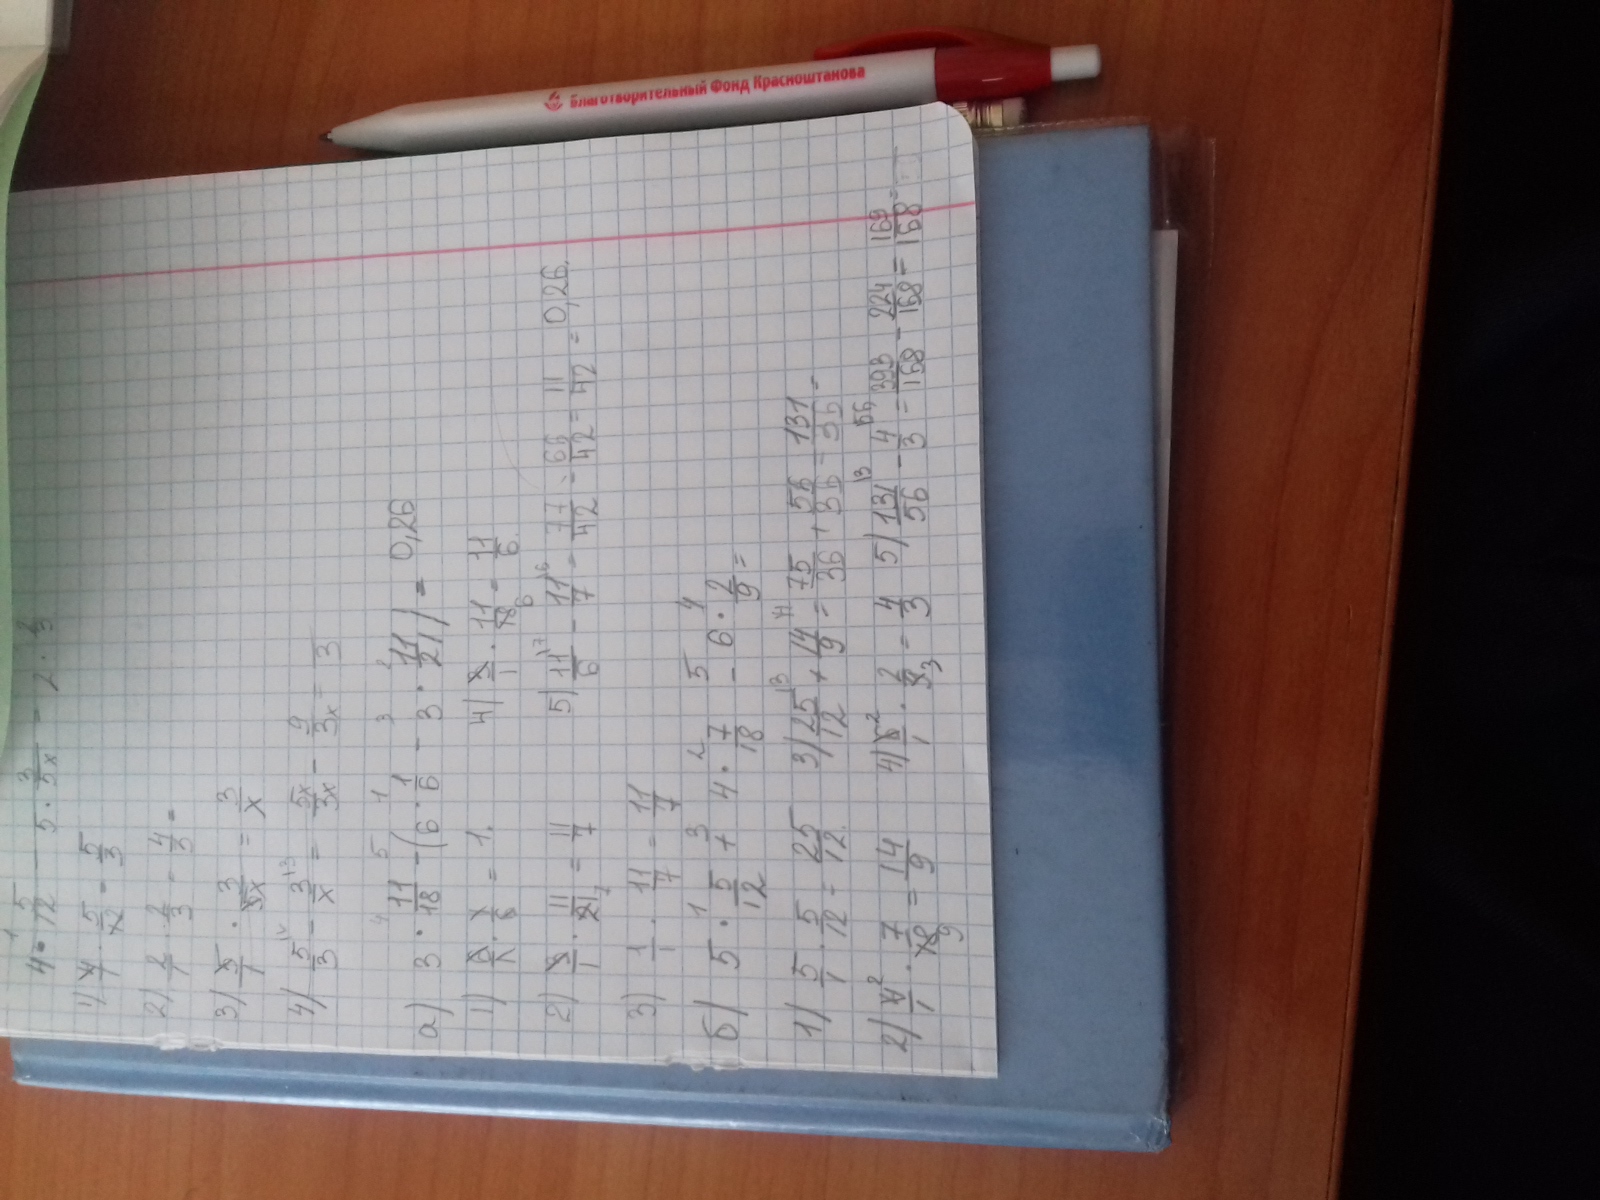 Благотворительный Фонд Красноштанова
4 · 5/12 - 5 · 3/5x - 2 ·
1) 4/1 · 5/12 = 5/3
2) 2/1 · 2/3 = 4/3 =
3) 5/1 · 3/5x = 3/x
4) 5/3 - 3/x = 5x/3x - 9/3x = /3
а) 3 · 11/18 - (6 · 1/6 - 3 · 11/21) = 0,26
1) 6/1 · 1/6 = 1.
4) 3/1 · 11/18 = 11/6.
2) 3/1 · 11/21 = 11/7
5) 11/6 - 11/7 = 77/42 - 66/42 = 11/42 = 0,26.
3) 1/1 · 11/7 = 11/7
б) 5 · 5/12 + 4 · 7/18 - 6 · 2/9 =
1) 5/1 · 5/12 = 25/12.
3) 25/12 + 14/9 = 75/36 + 56/36 = 131/36 =
2) 4/1 · 7/18 = 14/9
4) 6/1 · 2/9 = 4/3
5) 131/56 - 4/3 = 393/168 - 224/168 = 169/168 =